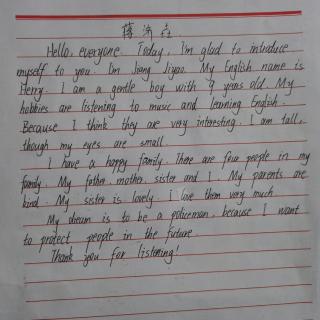 Hello, everyone. Today, I'm glad to introduce
myself to you. I'm Jiang Jiyao. My English name is
Herry. I am a gentle boy with 9 years old. My
hobbies are listening to music and learning English.
Because I think they are very interesting. I am tall,
though my eyes are small.
I have a happy family. There are four people in my
family. My father, mother, sister and I. My parents are
kind. My sister is lovely. I love them very much.
My dream is to be a policeman, because I want
to protect people in the future.
Thank you for listening!